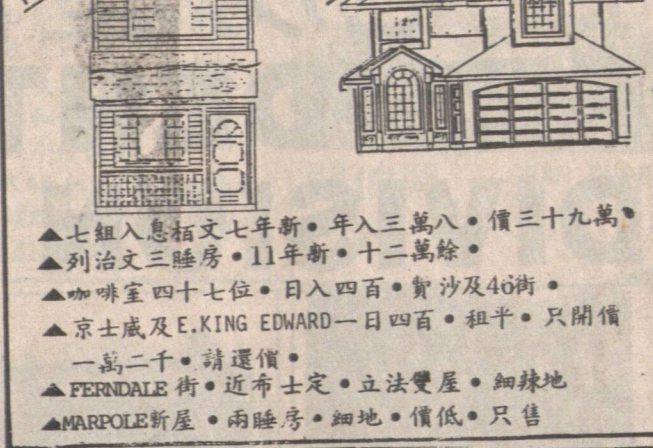 ▲七組入息栢文七年新•年入三萬八•價三十九萬•
▲列治文三睡房•11年新•十二萬餘•
▲咖啡室四十七位•日入四百•費沙及40街•
▲京士威及E.KING EDWARD一日四百•租平•只開價
一萬二千•請還價•
▲FERNDALE 街•近布士定•立法雙屋•細辣地
▲MARPOLE新屋•兩睡房•細地•價低•只售